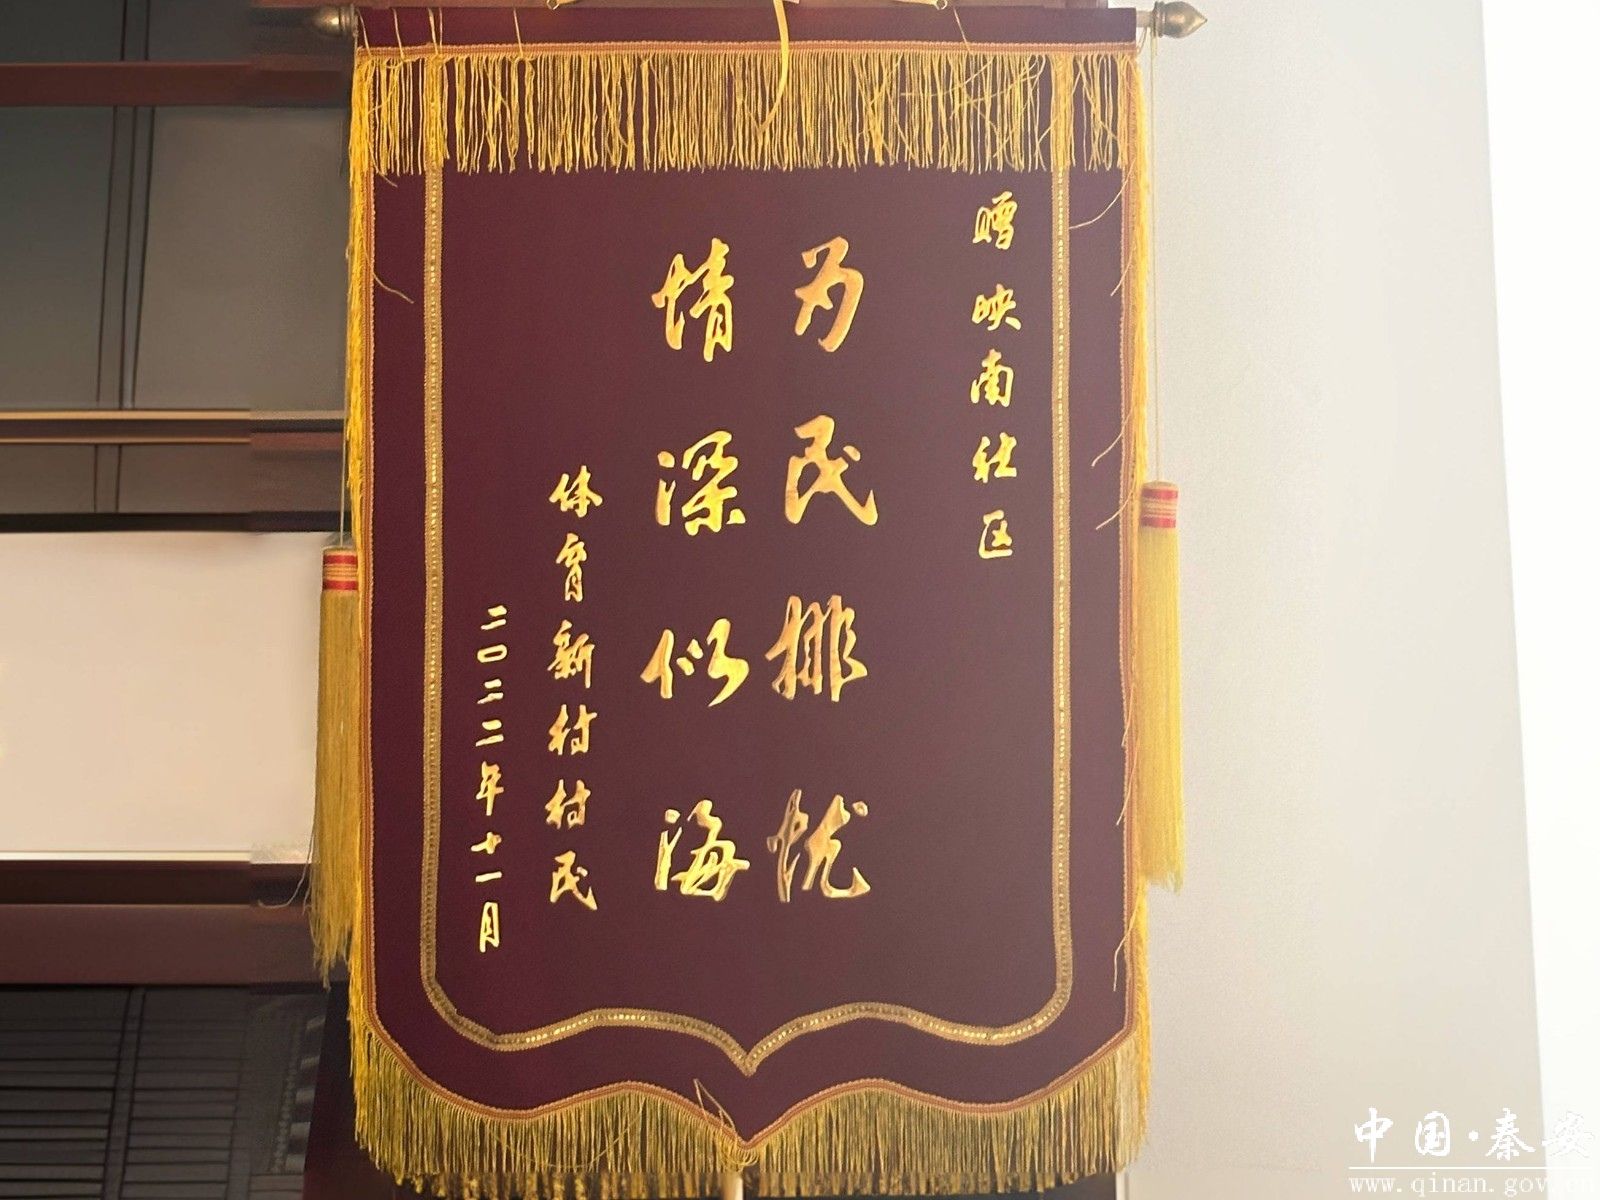 赠映南社区
为民排忧
情深似海
体育新村村民
二〇二二年十一月
中国·秦安
www.qinan.gov.cn